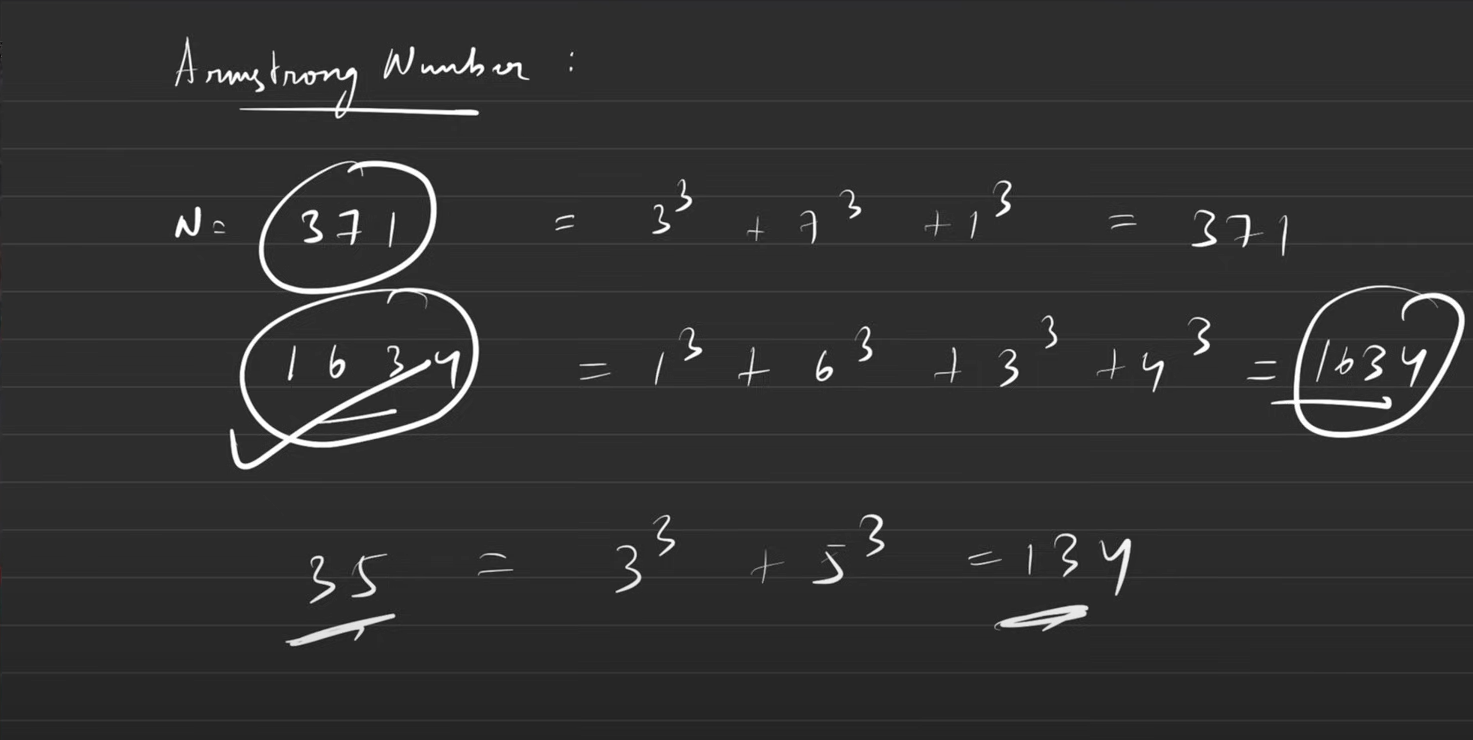 Armstrong Number :
N = 371 = 3³ + 7³ + 1³ = 371
1634 = 1³ + 6³ + 3³ + 4³ = 1634
35 = 3³ + 5³ = 134